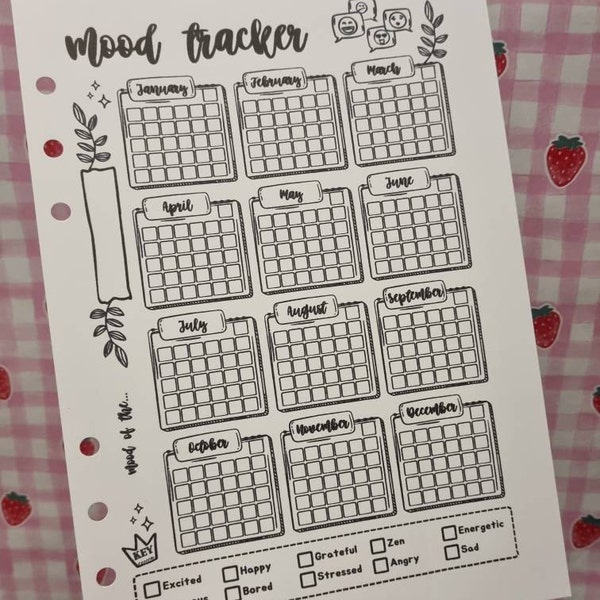 mood tracker
January February March
April May June
July August September
October November December
mood of the...
KEY
Excited Happy Grateful Zen Energetic
Bored Stressed Angry Sad